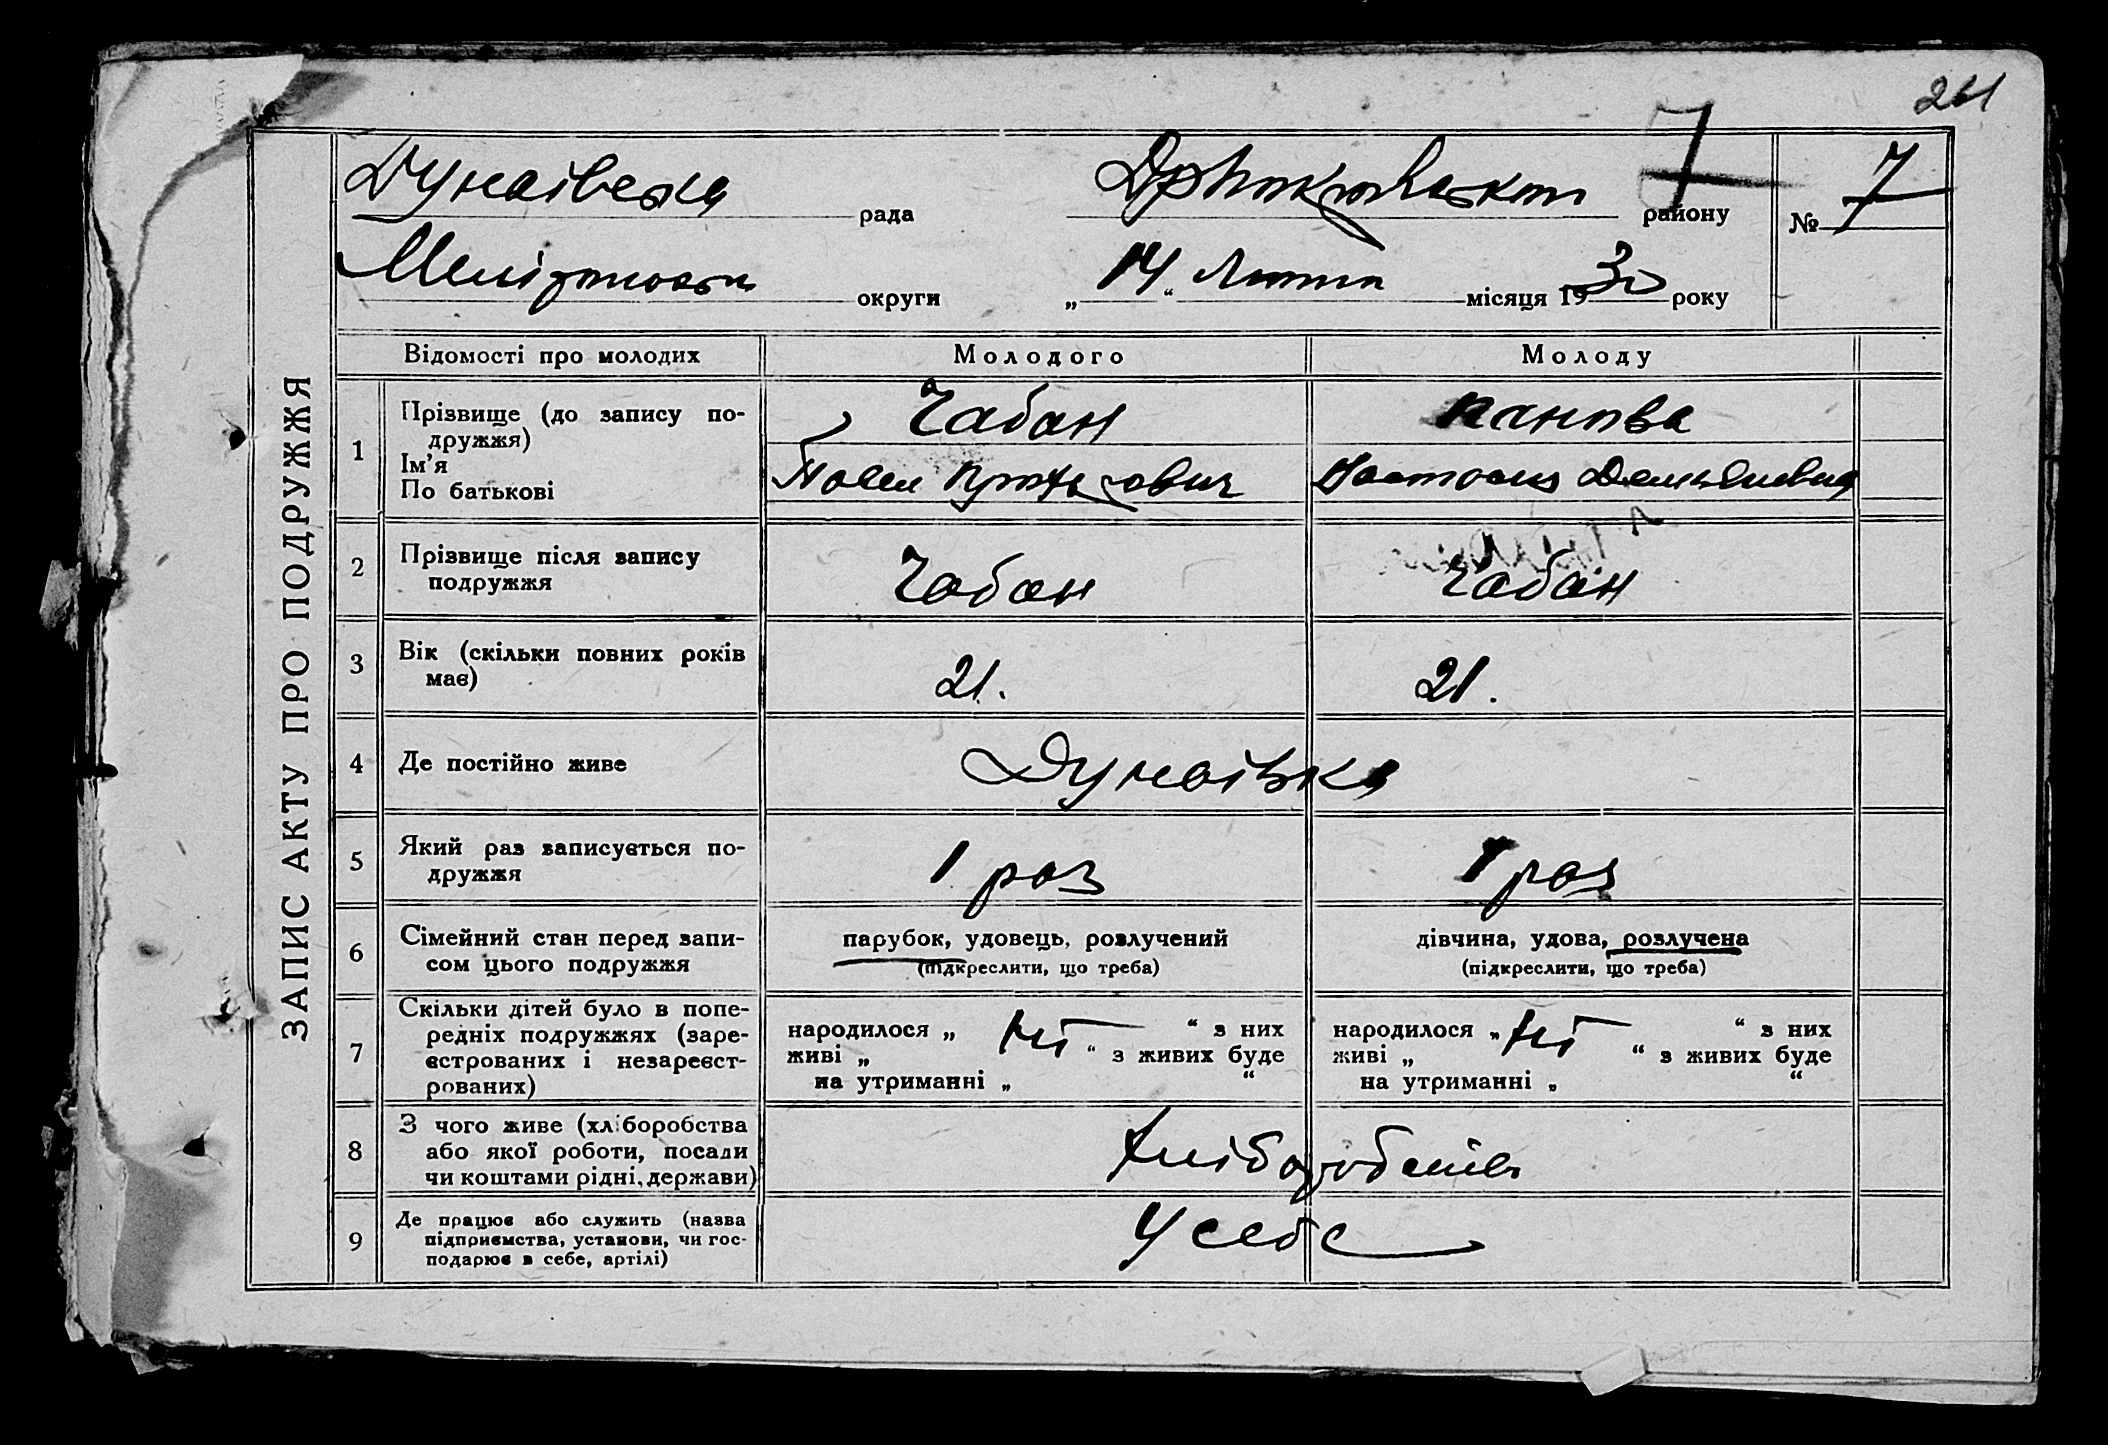 261
ЗАПИС АКТУ ПРО ПОДРУЖЖЯ
Дунаівска рада району 7
№ 7
округи „ 14 “ Лютого місяця 1930 року
Відомості про молодих Молодого Молоду
1 Прізвище (до запису по-
дружжя)
Ім’я
По батькові
Чабан
Павел
Панова
Настасия Демьяновна
2 Прізвище після запису
подружжя
Чабан Чабан
3 Вік (скільки повних років
має)
21. 21.
4 Де постійно живе
Дунаівка
5 Який раз записується по-
дружжя
1 раз 1 раз
6 Сімейний стан перед запи-
сом цього подружжя
парубок, удовець, розлучений
(підкреслити, що треба)
дівчина, удова, розлучена
(підкреслити, що треба)
7 Скільки дітей було в попе-
редніх подружжях (заре-
єстрованих і незареєст-
рованих)
народилося „ ні “ з них
живі „ “ з живих буде
на утриманні „ “
народилося „ ні “ з них
живі „ “ з живих буде
на утриманні „ “
8 З чого живе (хліборобства
або якої роботи, посади
чи коштами рідні, держави)
9 Де працює або служить (назва
підприємства, установи, чи гос-
подарює в себе, артілі)
У себе